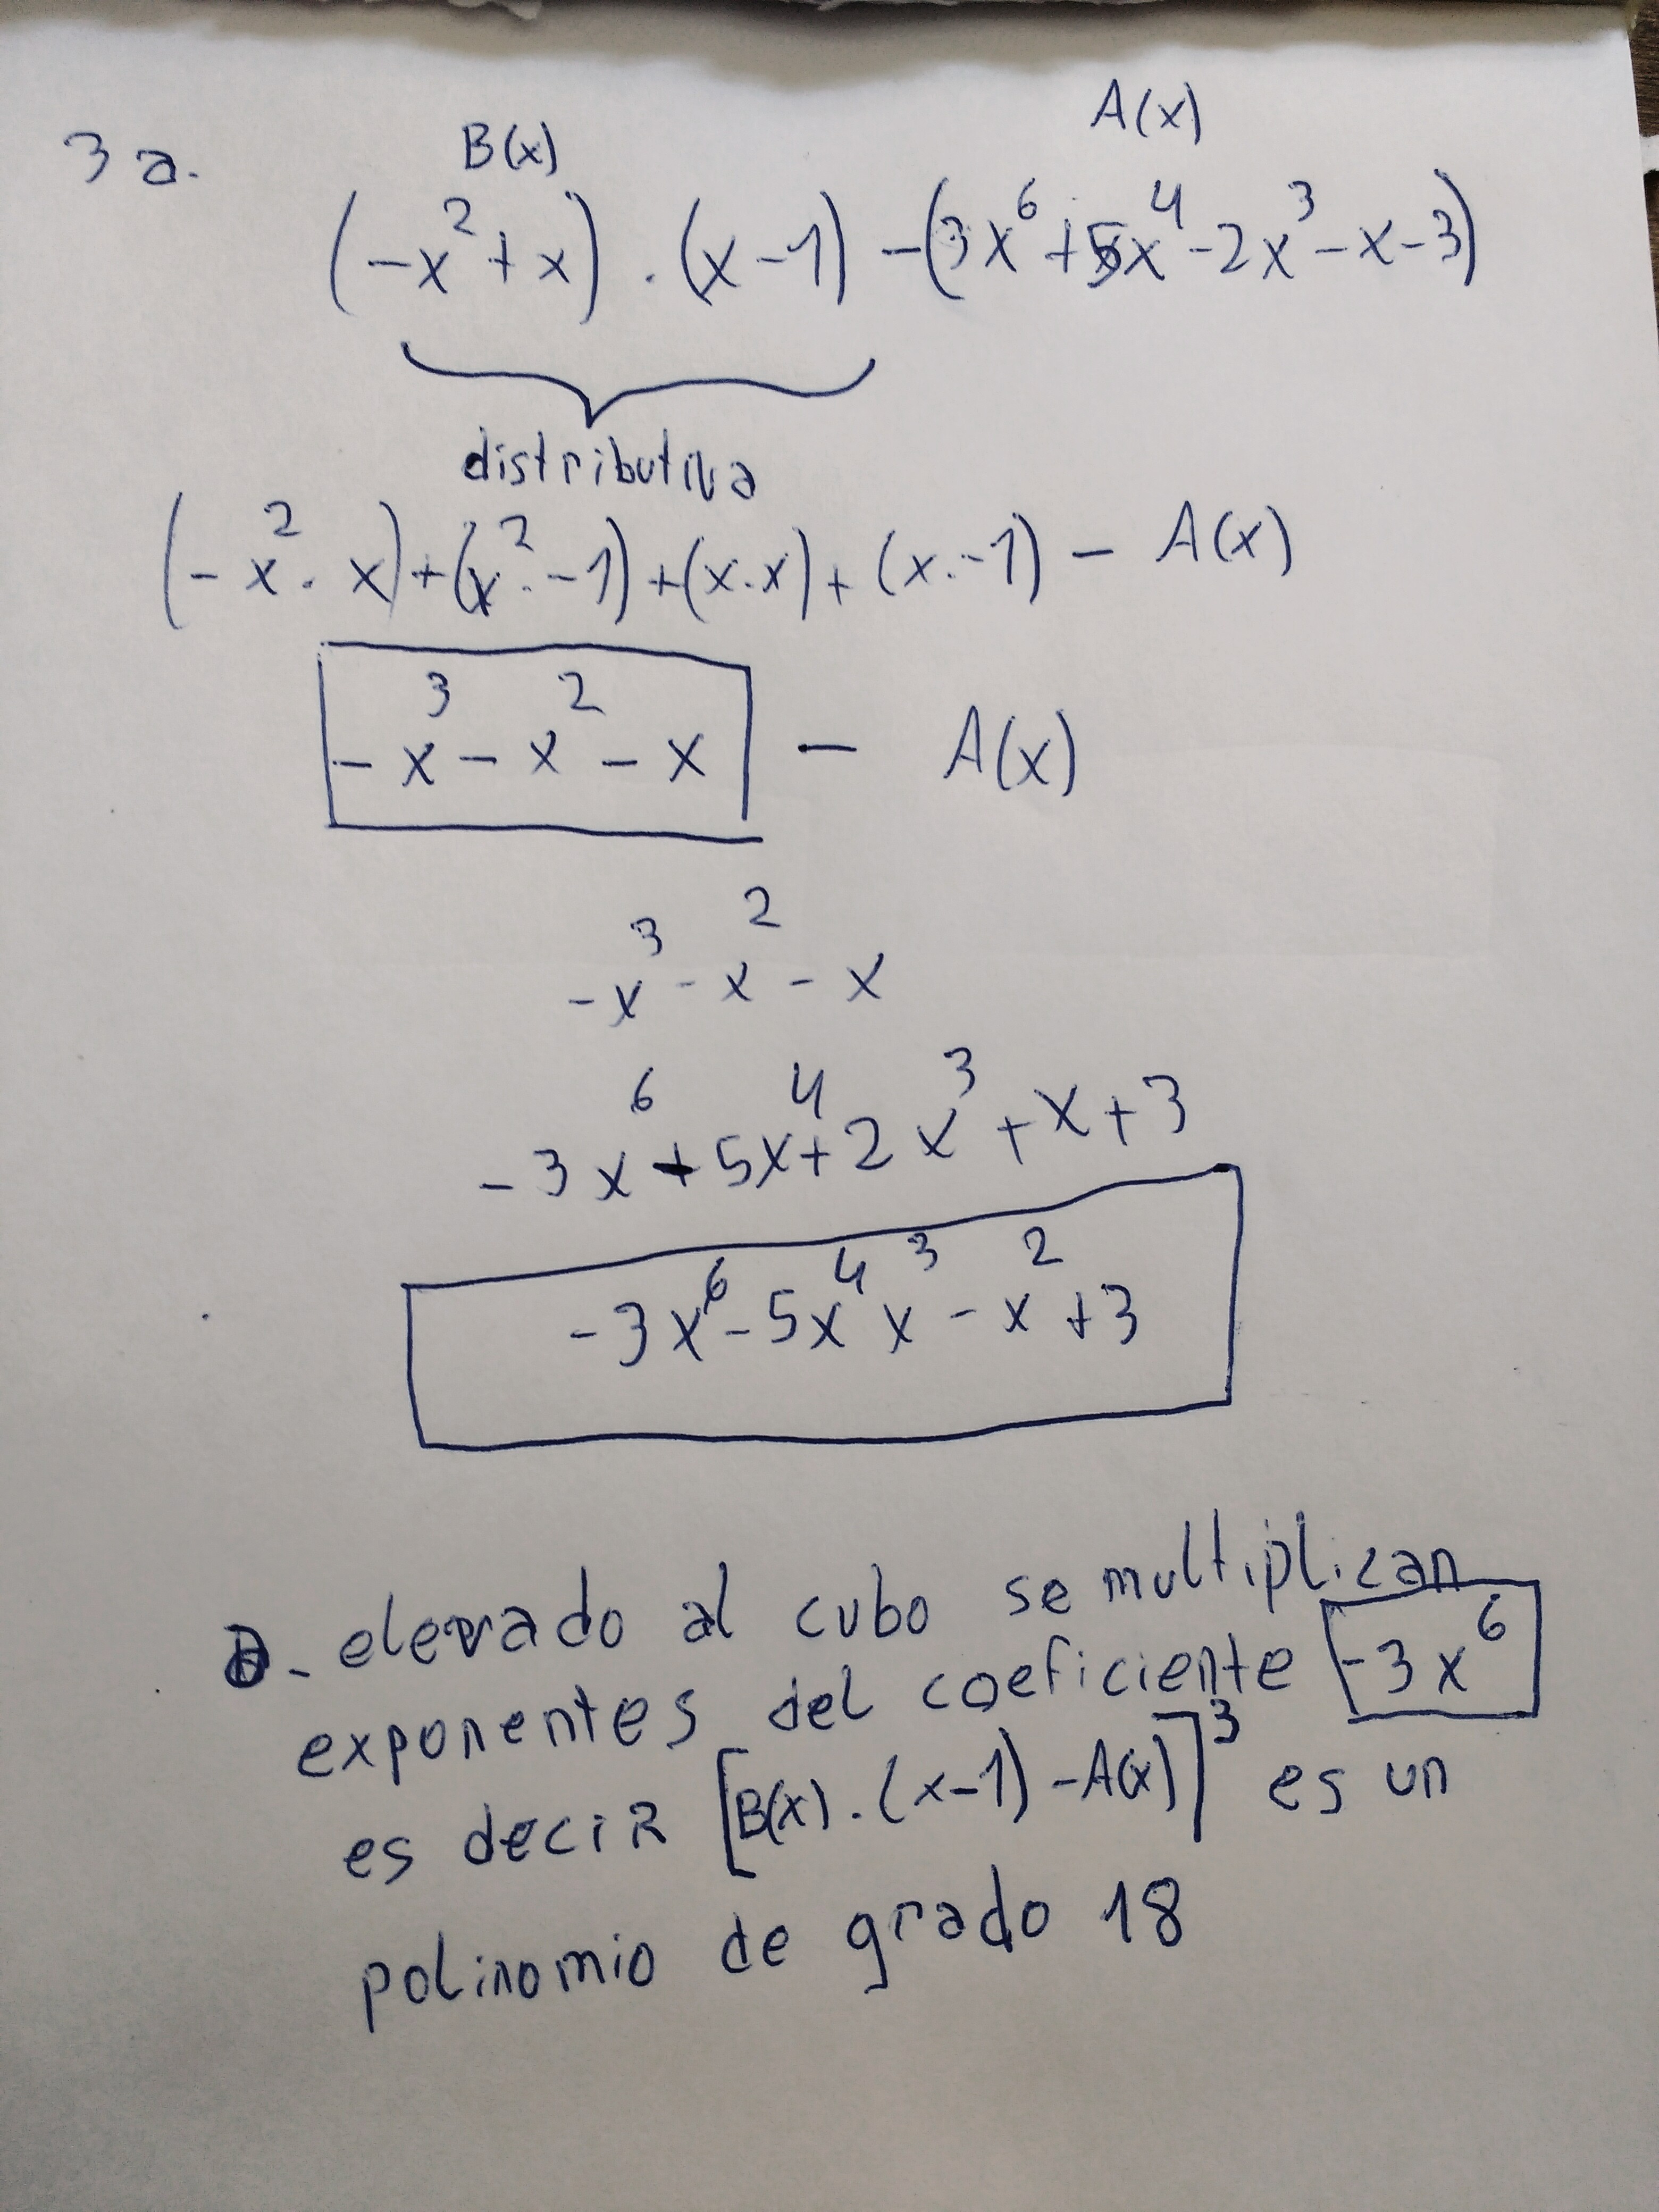 3 a.
B(x) A(x)
(-x² + x) . (x - 1) - (3x⁶ + 5x⁴ - 2x³ - x - 3)
distributiva
(-x² . x) + (x² . -1) + (x . x) + (x . -1) - A(x)
-x³ - x² - x - A(x)
-x³ - x² - x
-3x⁶ + 5x⁴ + 2x³ + x + 3
-3x⁶ - 5x⁴ x³ - x² + 3
b. elevado al cubo se multiplican
exponentes del coeficiente -3x⁶
es decir [B(x) . (x-1) - A(x)]³ es un
polinomio de grado 18